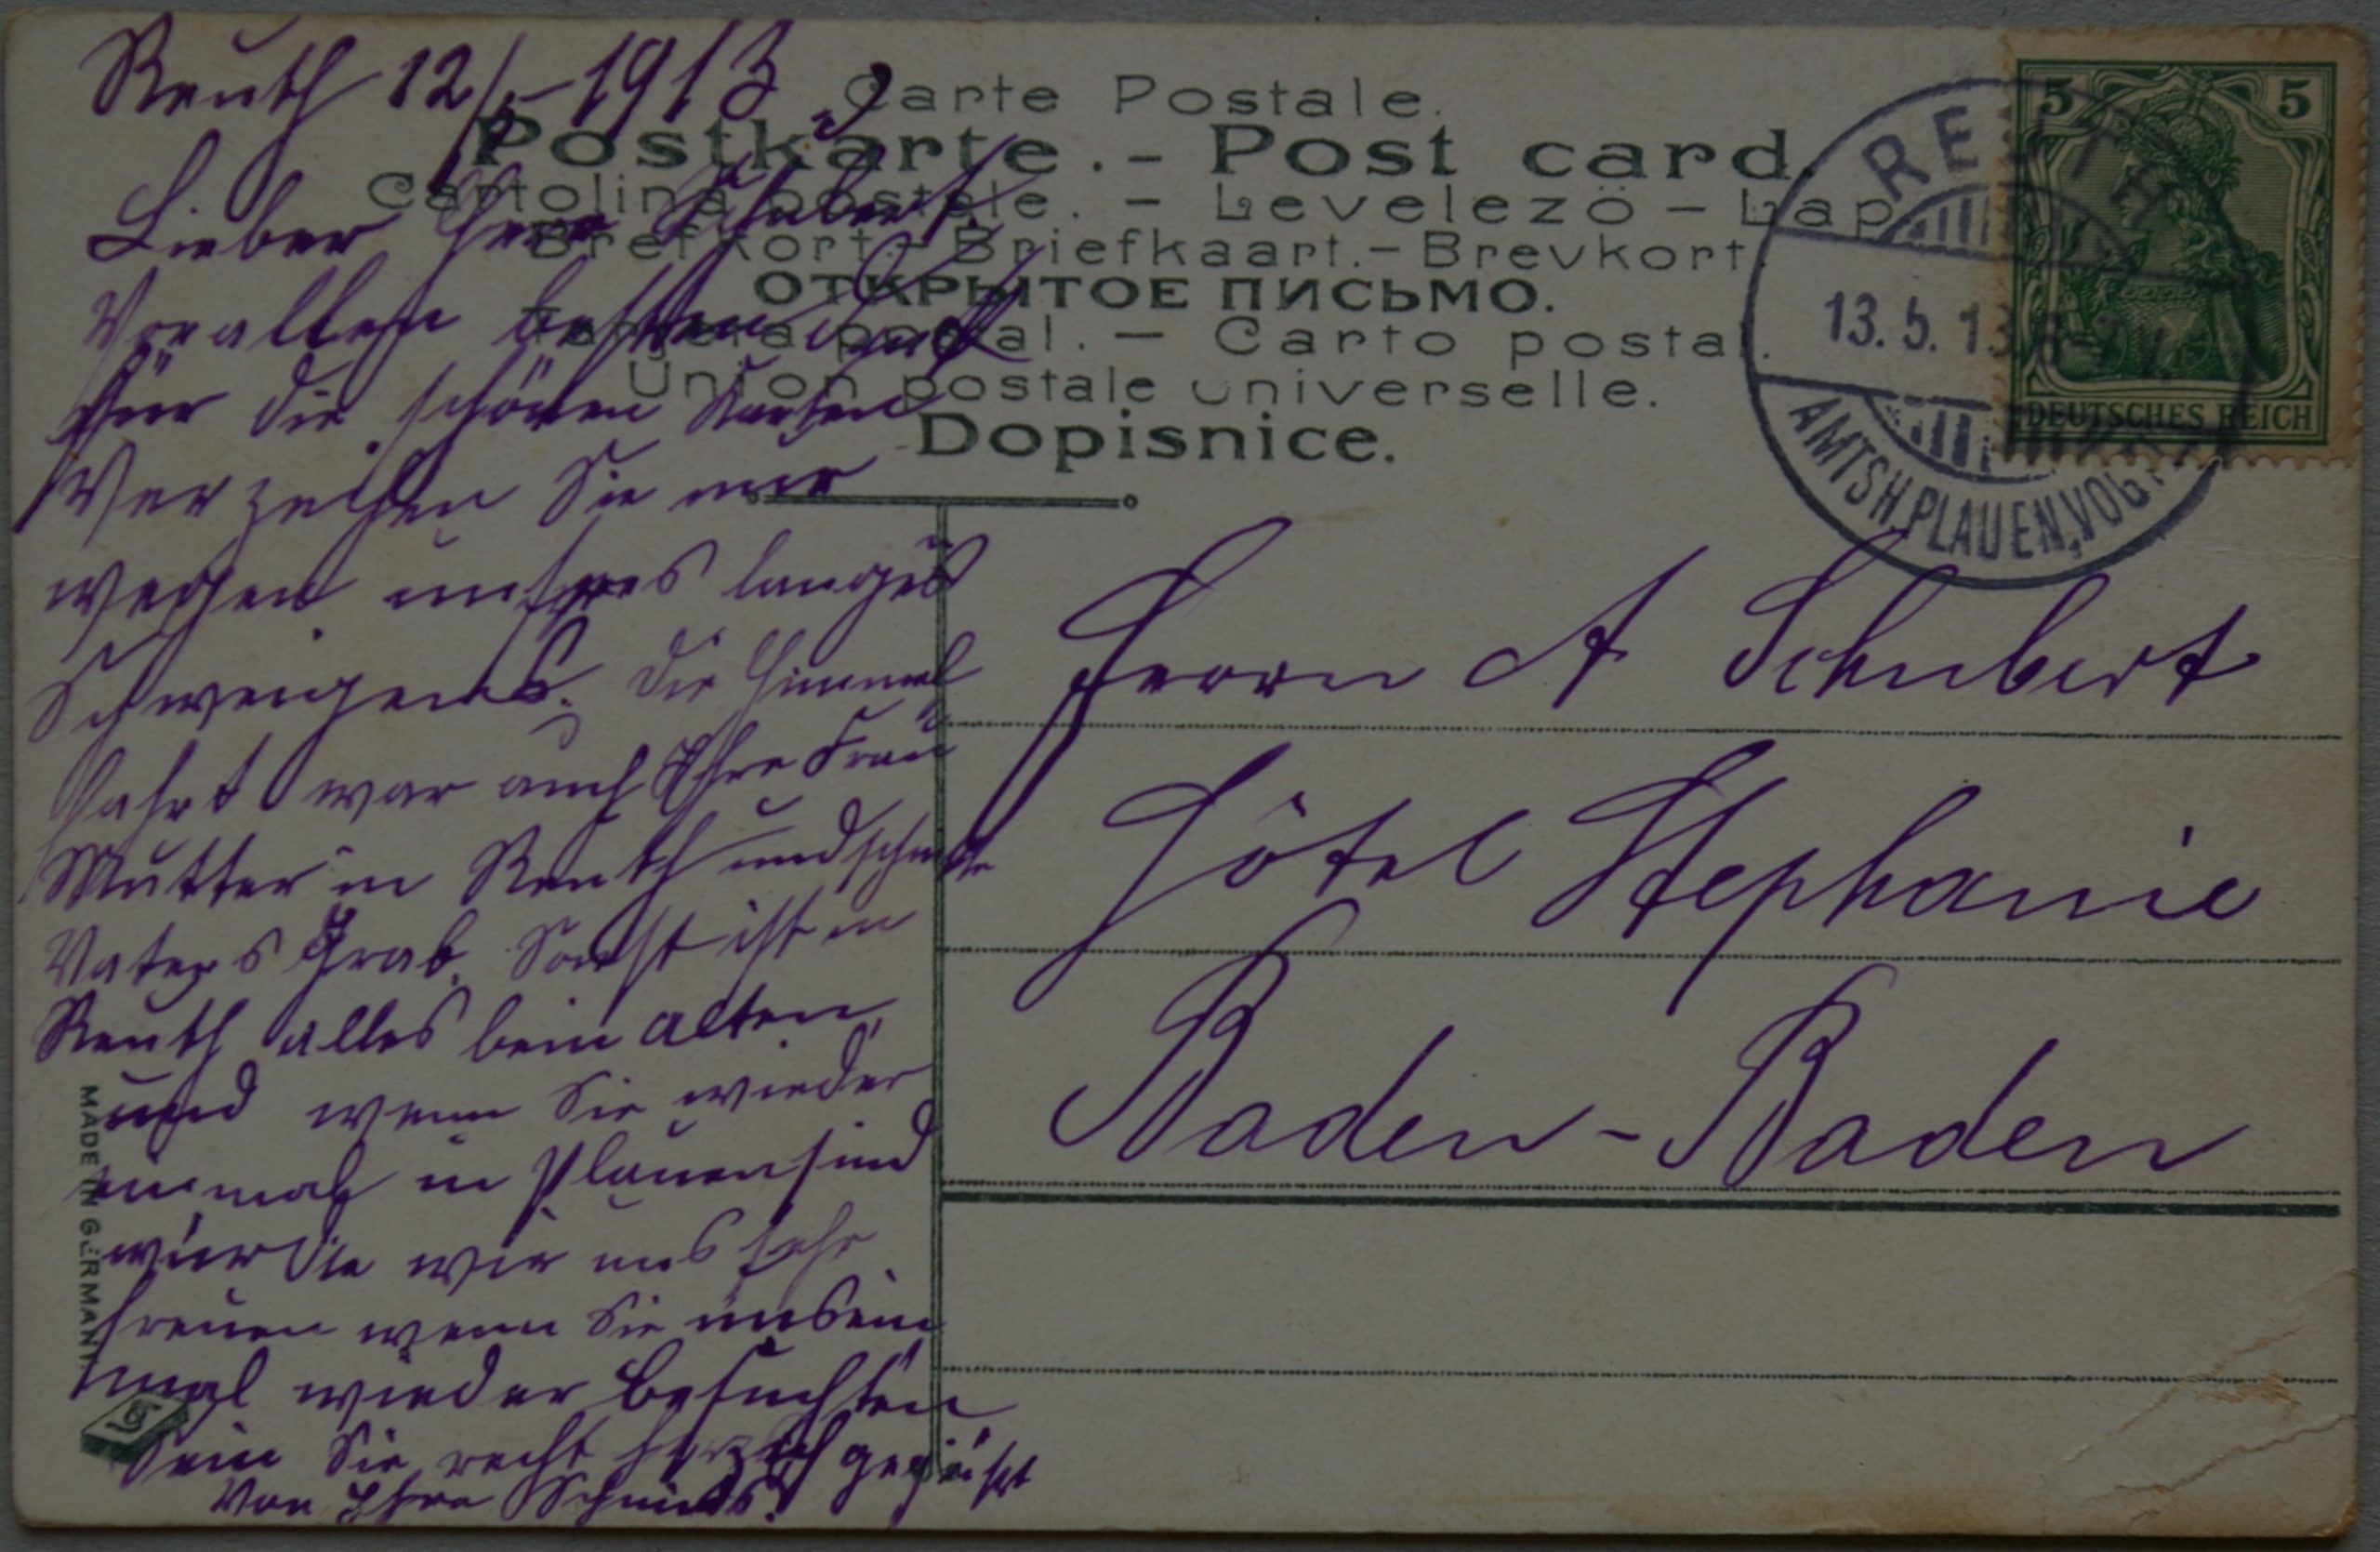 Reuth 12/5 1913
Lieber Herr Schubert
Vor allem besten Dank
für die schönen Karten
Verzeihen Sie nur
wegen unsres langes
Schweigens. Die Himmel
fahrt war auch Ihre Frau
Mutter in Reuth und schmückte
Vaters Grab. Sonst ist in
Reuth alles beim alten
und wenn Sie wieder
einmal in Plauen sind
würde wir uns sehr
freuen wenn Sie uns ein
mal wieder besuchten
Sein Sie recht herzlich gegrüsst
von Ihre
Carte Postale.
Postkarte. - Post card.
Cartolina postale. - Levelezö-Lap.
Brefkort.-Briefkaart.-Brevkort.
ОТКРЫТОЕ ПИСЬМО.
Tarjeta postal. - Carto postal.
Union postale universelle.
Dopisnice.
5 5
DEUTSCHES REICH
REUTH
13.5.13
AMTSH. PLAUEN, VOGTL.
Herrn A Schubert
Hôtel Stephanie
Baden-Baden
MADE IN GERMANY